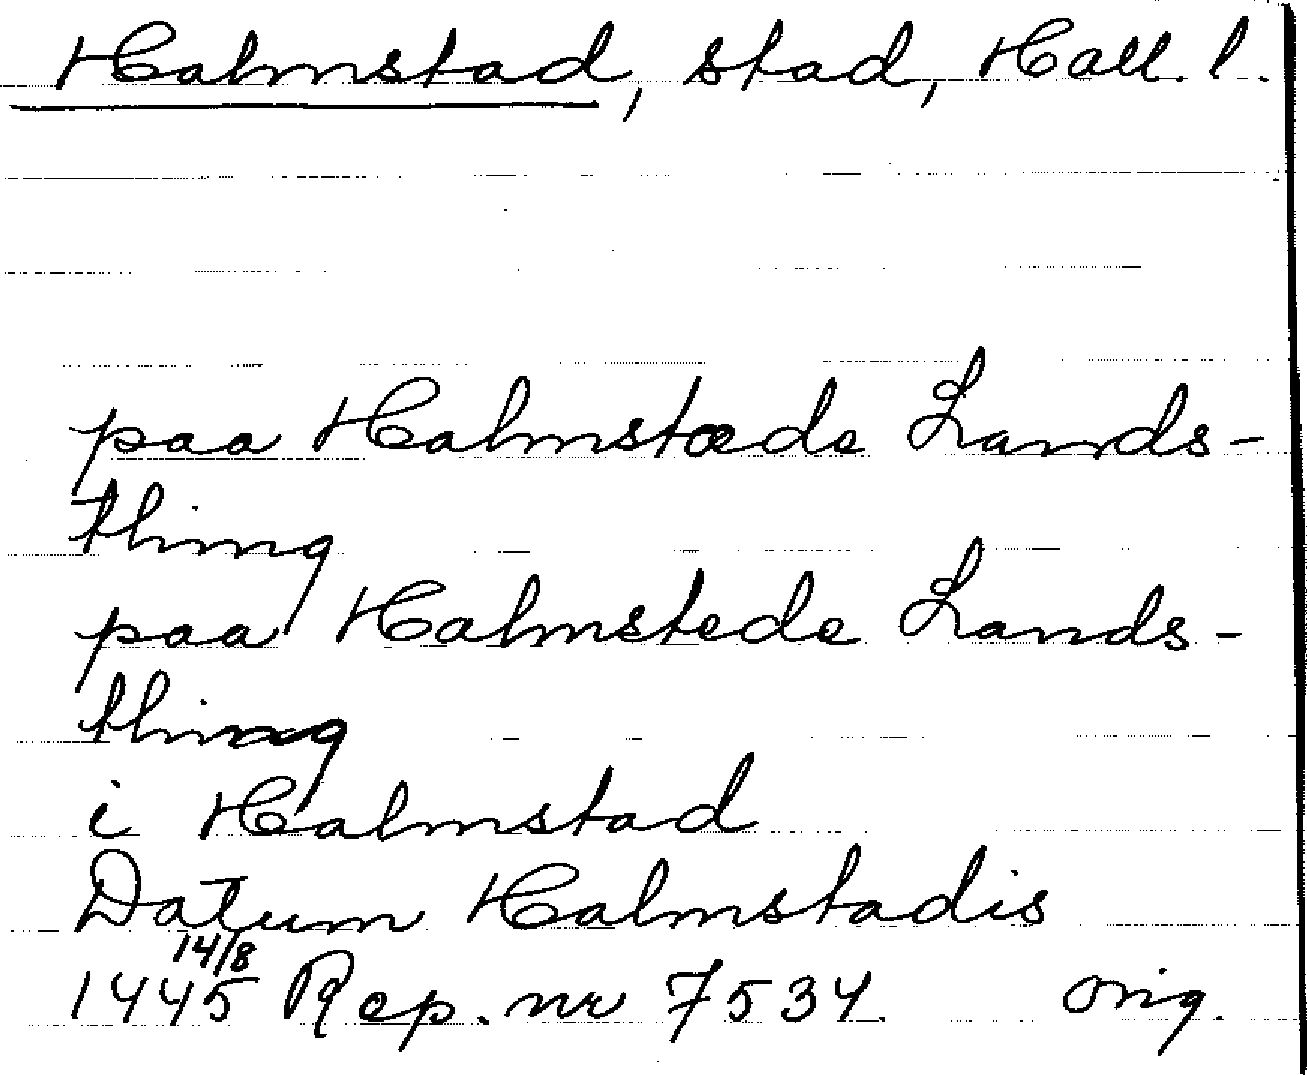 Halmstad, stad, Hall. l.
paa Halmstæde Lands-
thing
paa Halmstede Lands-
thing
i Halmstad
Datum Halmstadis
14/8
1445 Rep. nr 7534. orig.